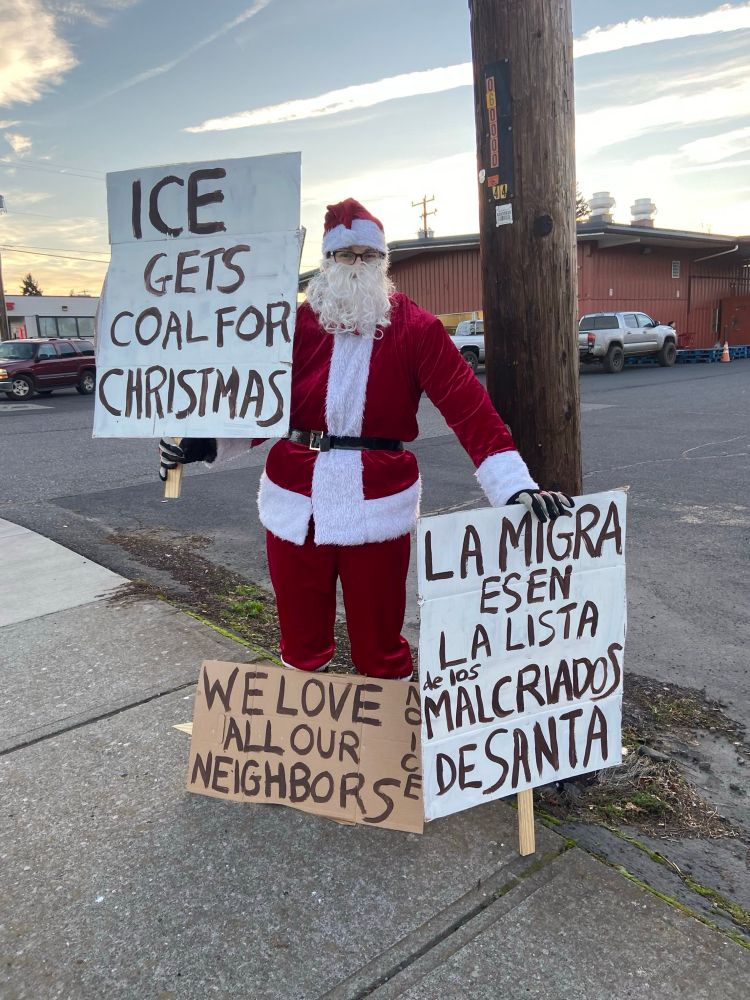 ICE
GETS
COAL FOR
CHRISTMAS
060000
44
LA MIGRA
ES EN
LA LISTA
de los
MALCRIADOS
DE SANTA
WE LOVE
ALL OUR
NEIGHBORS
NO ICE